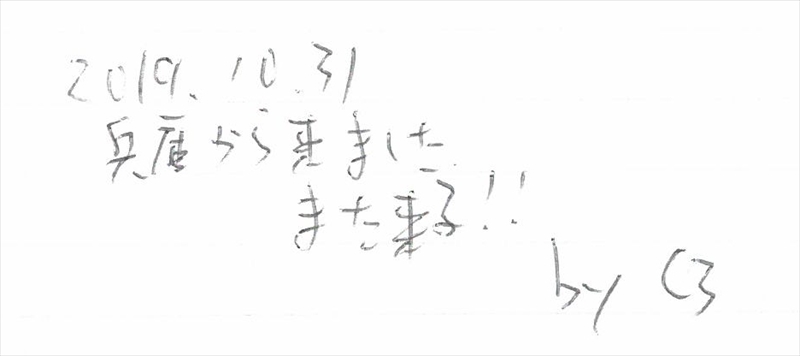 2019.10.31
兵庫から来ました
また来る!!
by C3